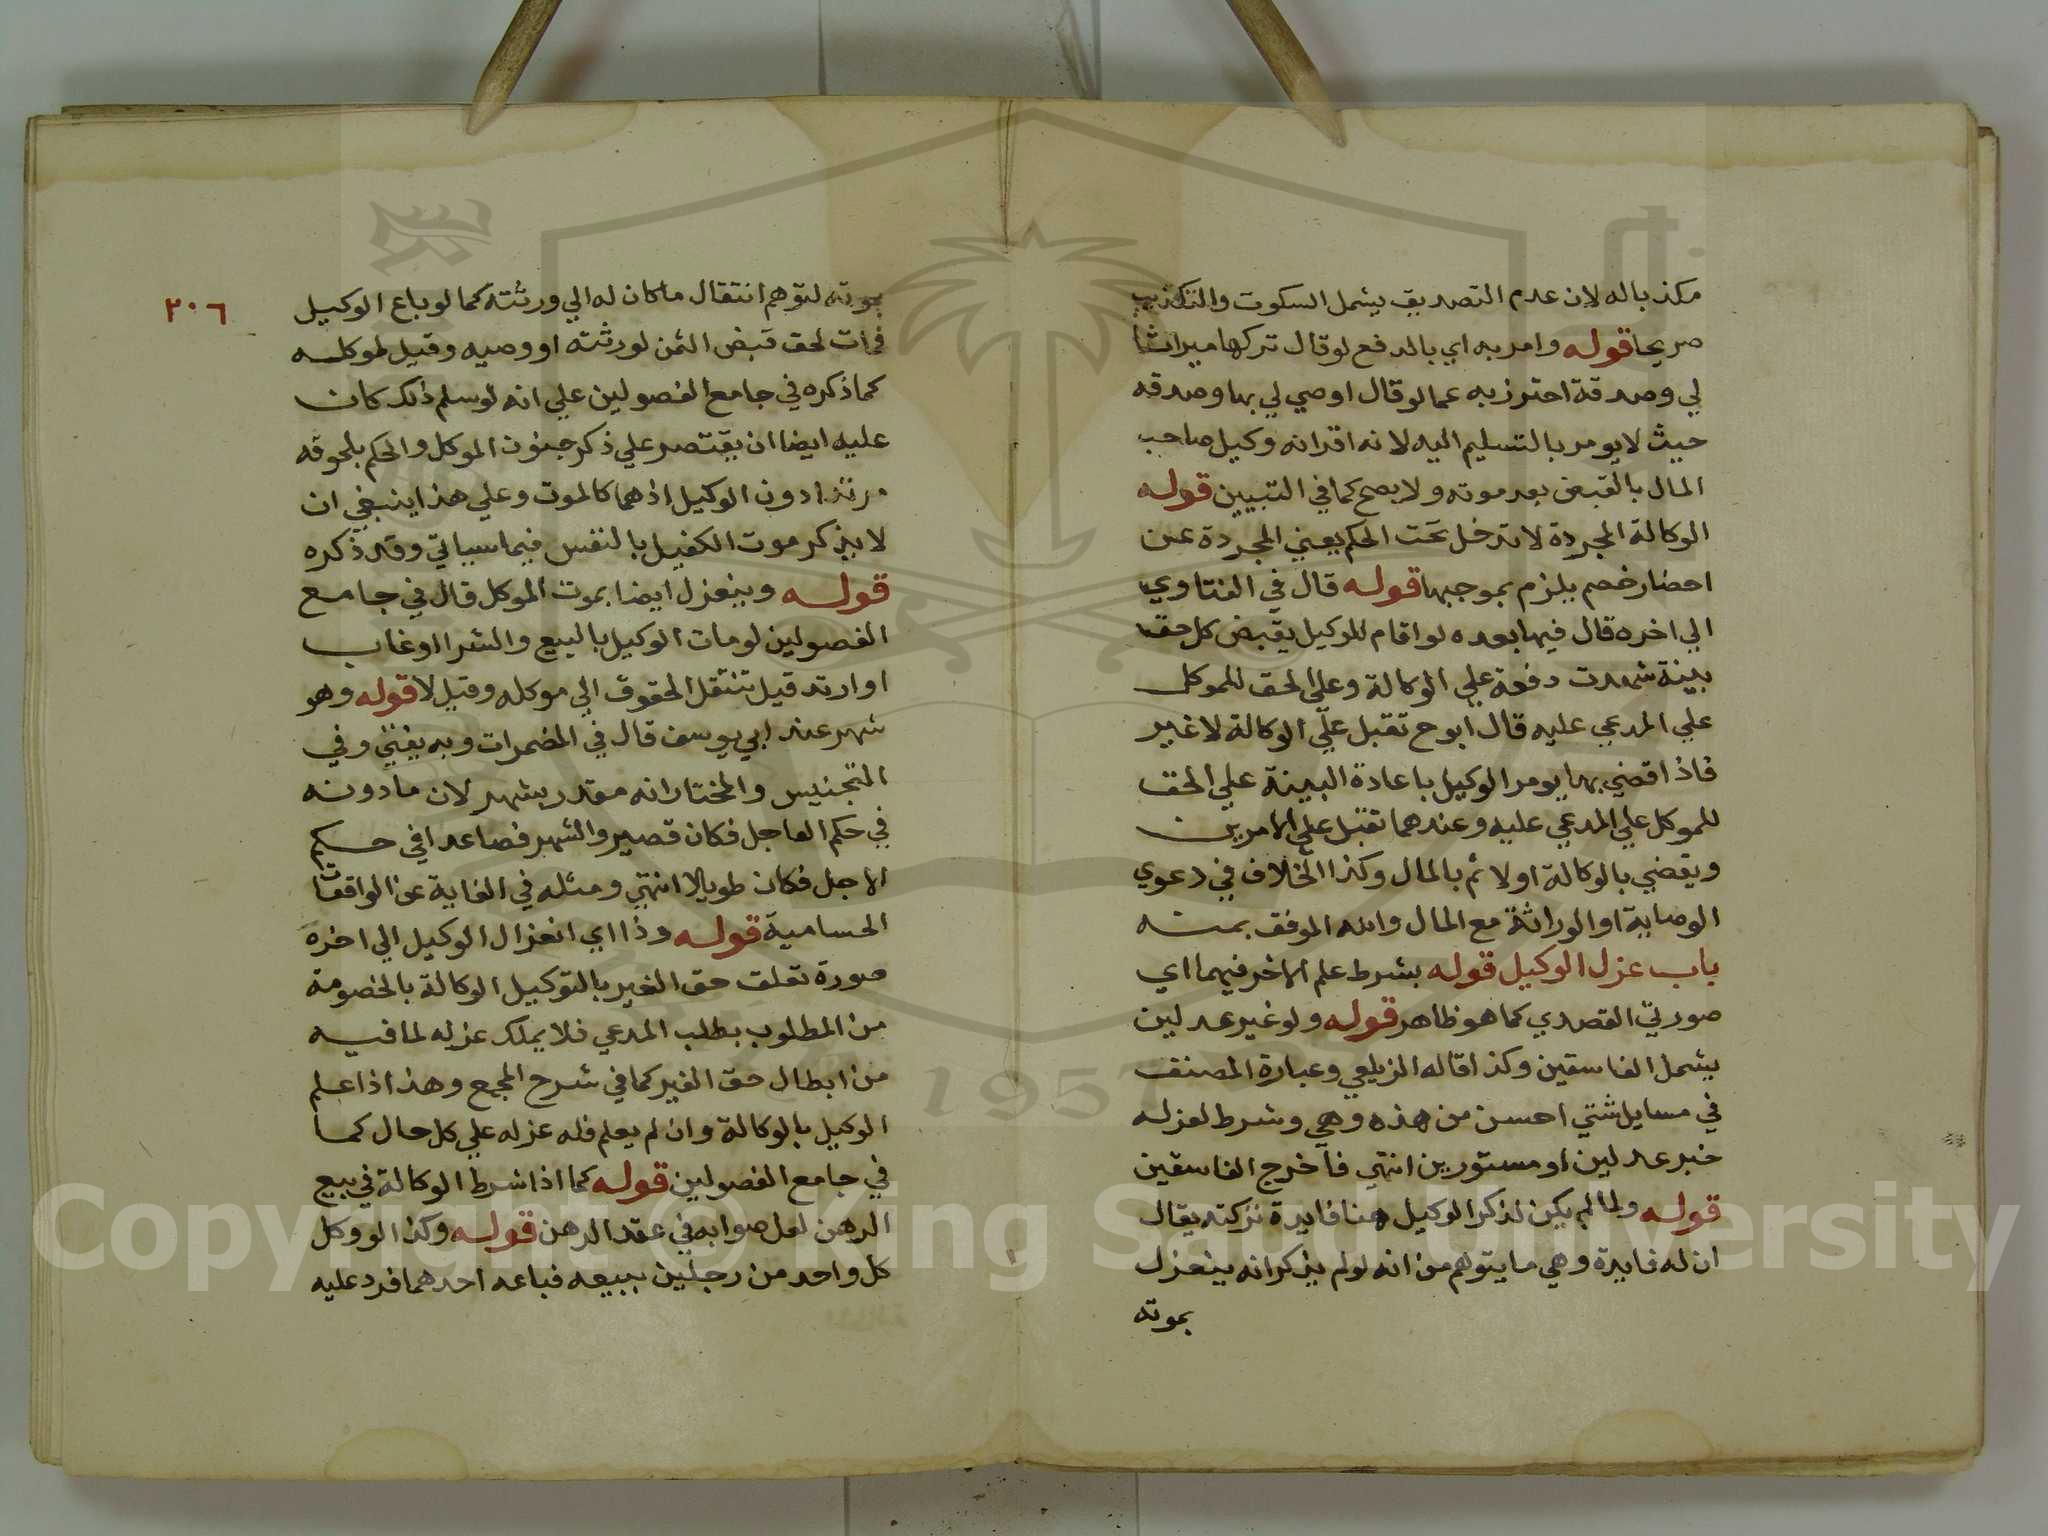 مكذباله لان عدم التصديق يشمل السكوت والتكذيب
صريحا قوله وامر به اي بالدفع لو قال تركها ميراثا
لي وصدقة احترز به عمالو قال اوصي لي بها وصدقه
حيث لا يومر بالتسليم اليه لانه اقرانه وكيل صاحب
المال بالقبض بعد موته ولا يصح كما في التبيين قوله
الوكالة المجردة لا تدخل تحت الحكم يعني المجردة عن
احضار خصم يلزم بموجبها قوله قال في الفتاوي
الي اخره قال فيها بعده لو اقام للوكيل يقبض كل حق
بينة شهدت دفعة علي الوكالة وعلي الحق للموكل
علي المدعي عليه قال ابو ح تقبل علي الوكالة لا غير
فاذا قضي بها يومر الوكيل باعادة البينة علي الحق
للموكل علي المدعي عليه وعندهما تقبل علي الامرين
ويقضي بالوكالة اولا ثم بالمال وكذا الخلاف في دعوي
الوصاية او الوراثة مع المال والله الموفق بمنه
باب عزل الوكيل قوله بشرط علم الاخر فيهما اي
صورتي القصدي كما هو ظاهر قوله ولو غير عدلين
يشمل الفاسقين وكذا قاله الزيلعي وعبارة المصنف
في مسايل شتي احسن من هذه وهي وشرط لعزله
خبر عدلين او مستورين انتهي فاخرج الفاسقين
قوله ولما لم يكن لذكر الوكيل هنا فايدة تركته يقال
ان له فايدة وهي ما يتوهم من انه لو لم يذكر انه ينعزل
بموته
٢٠٦
بموته لتوهم انتقال ما كان له الي ورثته كما لو باع الوكيل
فمات لحق قبض الثمن لورثته او وصيه وقيل لموكله
كما ذكره في جامع الفصولين علي انه لو سلم ذلك كان
عليه ايضا ان يقتصر علي ذكر جنون الموكل والحكم بلحوقه
مرتدا دون الوكيل اذ هما كالموت وعلي هذا ينبغي ان
لا يذكر موت الكفيل بالنفس فيما سياتي وقد ذكره
قوله وينعزل ايضا بموت الموكل قال في جامع
الفصولين لو مات الوكيل بالبيع والشرا او غاب
او ارتد قيل تنتقل الحقوق الي موكله وقيل لا قوله وهو
شهر عند ابي يوسف قال في المضمرات وبه يفتي وفي
التجنيس والمختار انه مقدر بشهر لان ما دونه
في حكم العاجل فكان قصير والشهر فصاعدا في حكم
الاجل فكان طويلا انتهي ومثله في الغاية عن الواقعات
الحسامية قوله وذا اي انعزال الوكيل الي اخره
صورة تعلق حق الغير بالتوكيل الوكالة بالخصومة
من المطلوب بطلب المدعي فلا يملك عزله لما فيه
من ابطال حق الغير كما في شرح المجمع وهذا اذا علم
الوكيل بالوكالة وان لم يعلم فله عزله علي كل حال كما
في جامع الفصولين قوله كما اذا شرط الوكالة في بيع
الرهن لعل صوابه في عقد الرهن قوله وكذا لو وكل
كل واحد من رجلين ببيعه فباعه احدهما فرد عليه
1957
Copyright © King Saud University